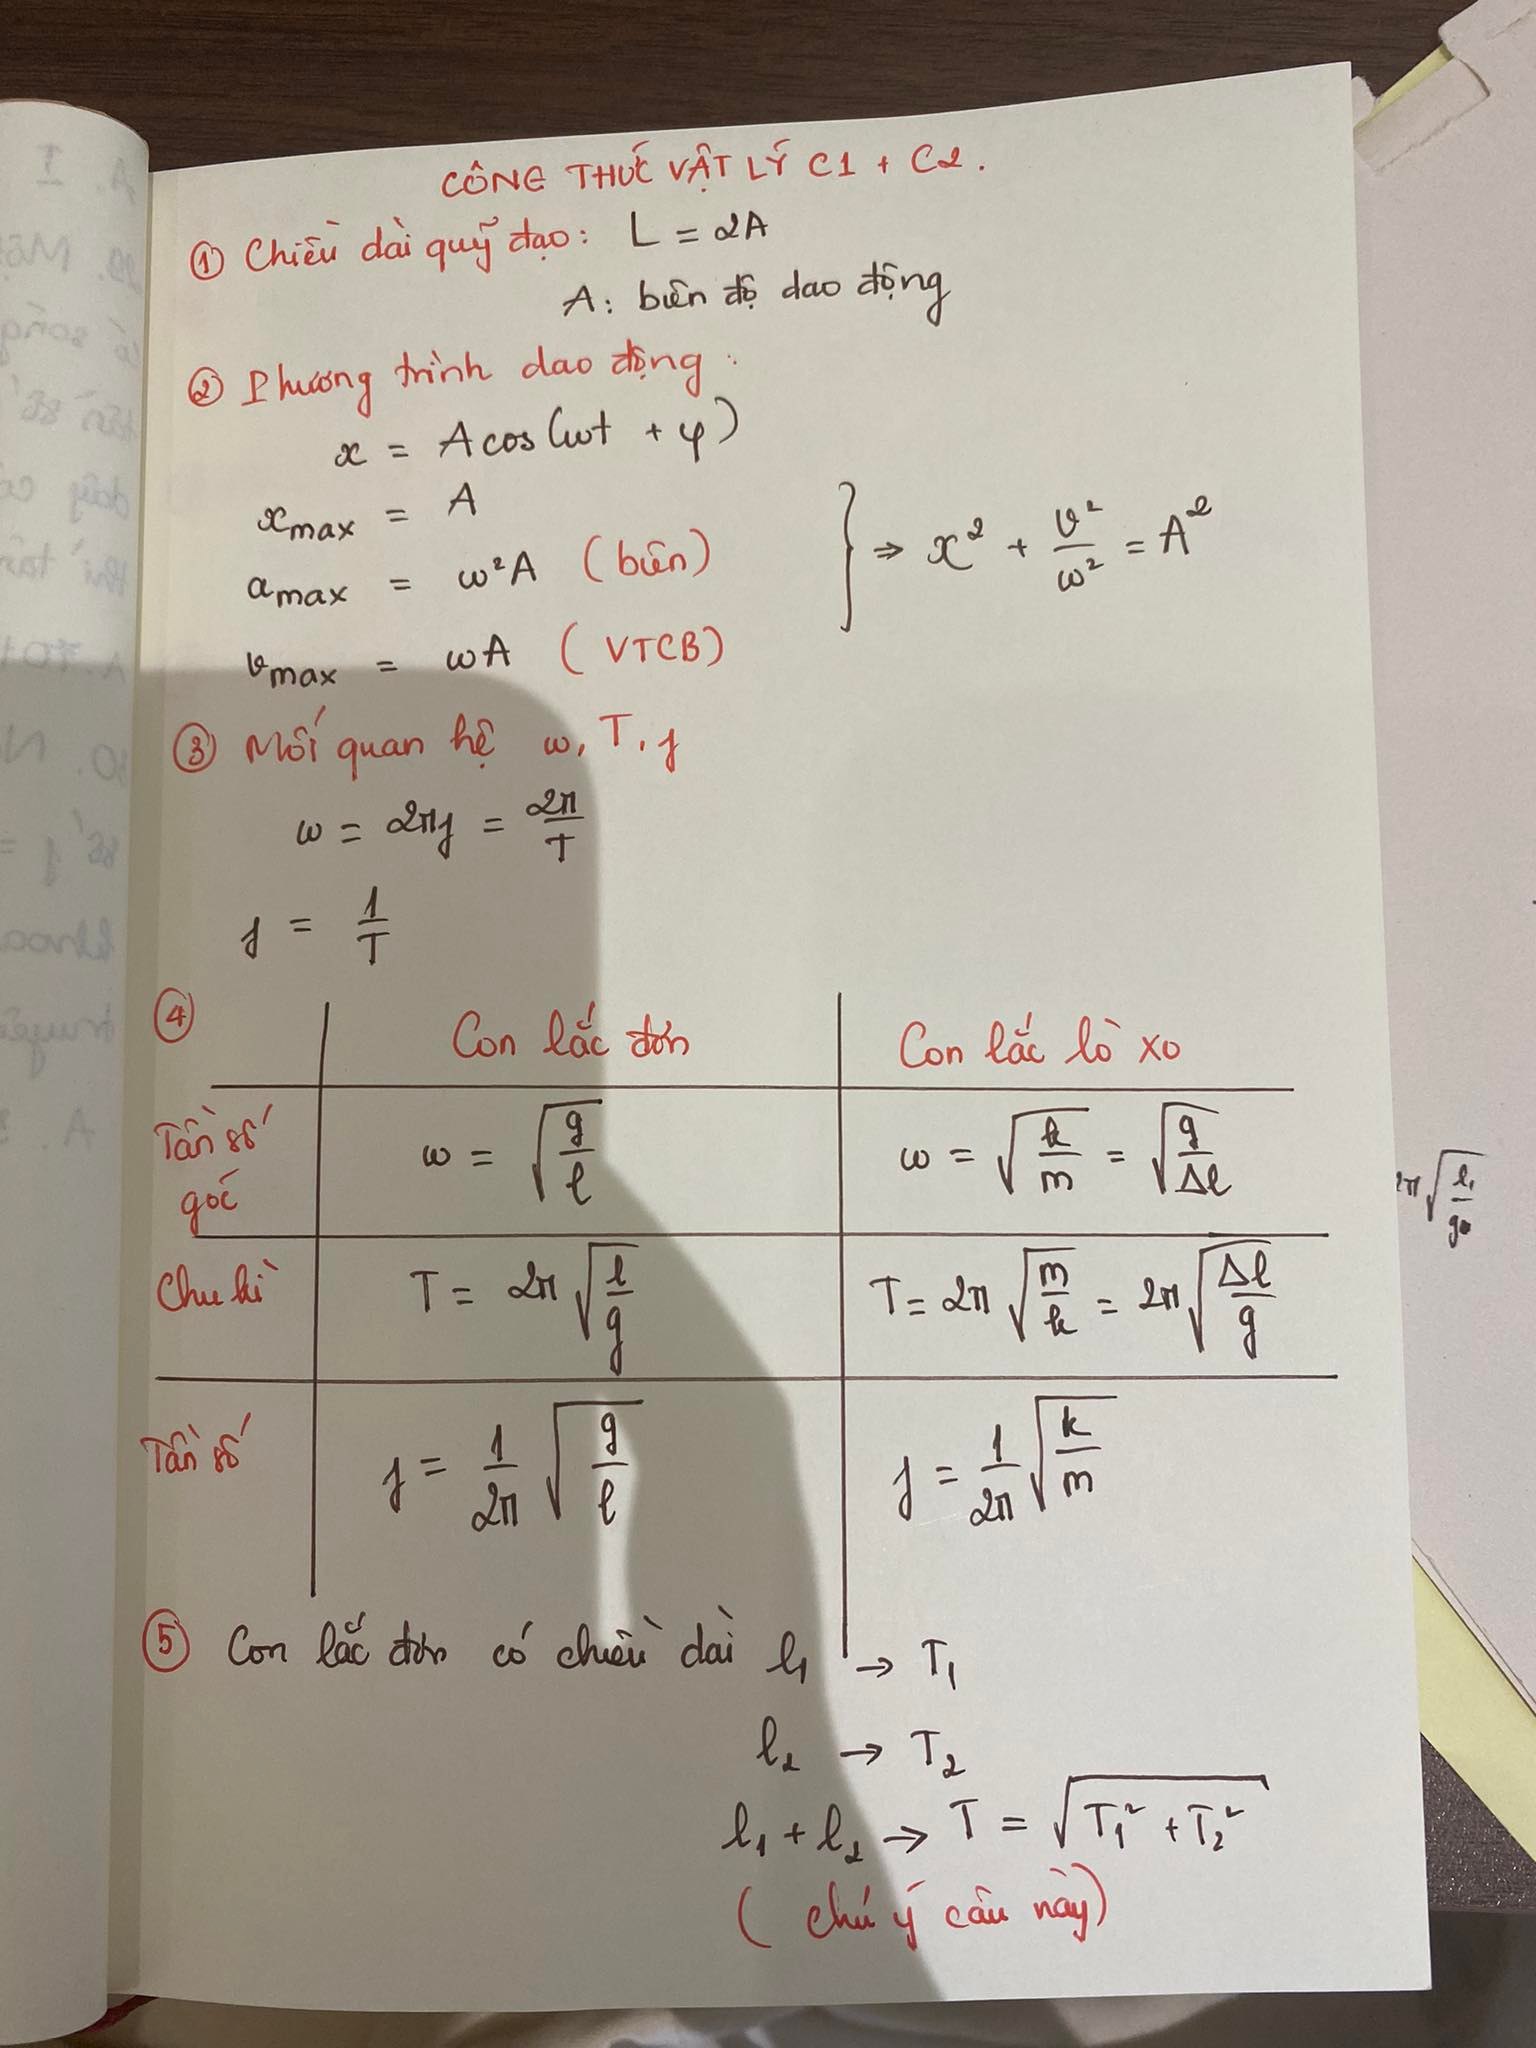 CÔNG THỨC VẬT LÝ C1 + C2.
① Chiều dài quỹ đạo: L = 2A
A: biên độ dao động
② Phương trình dao động:
x = A cos(ωt + φ)
xmax = A
amax = ω²A (biên)
} ⇒ x² + v²/ω² = A²
vmax = ωA (VTCB)
③ Mối quan hệ ω, T, f
ω = 2πf = 2π/T
f = 1/T
④ Con lắc đơn Con lắc lò xo
Tần số góc ω = √(g/l) ω = √(k/m) = √(g/Δl)
Chu kì T = 2π√(l/g) T = 2π√(m/k) = 2π√(Δl/g)
Tần số f = 1/2π √(g/l) f = 1/2π √(k/m)
⑤ Con lắc đơn có chiều dài l₁ → T₁
l₂ → T₂
l₁ + l₂ → T = √(T₁² + T₂²)
(chú ý câu này)